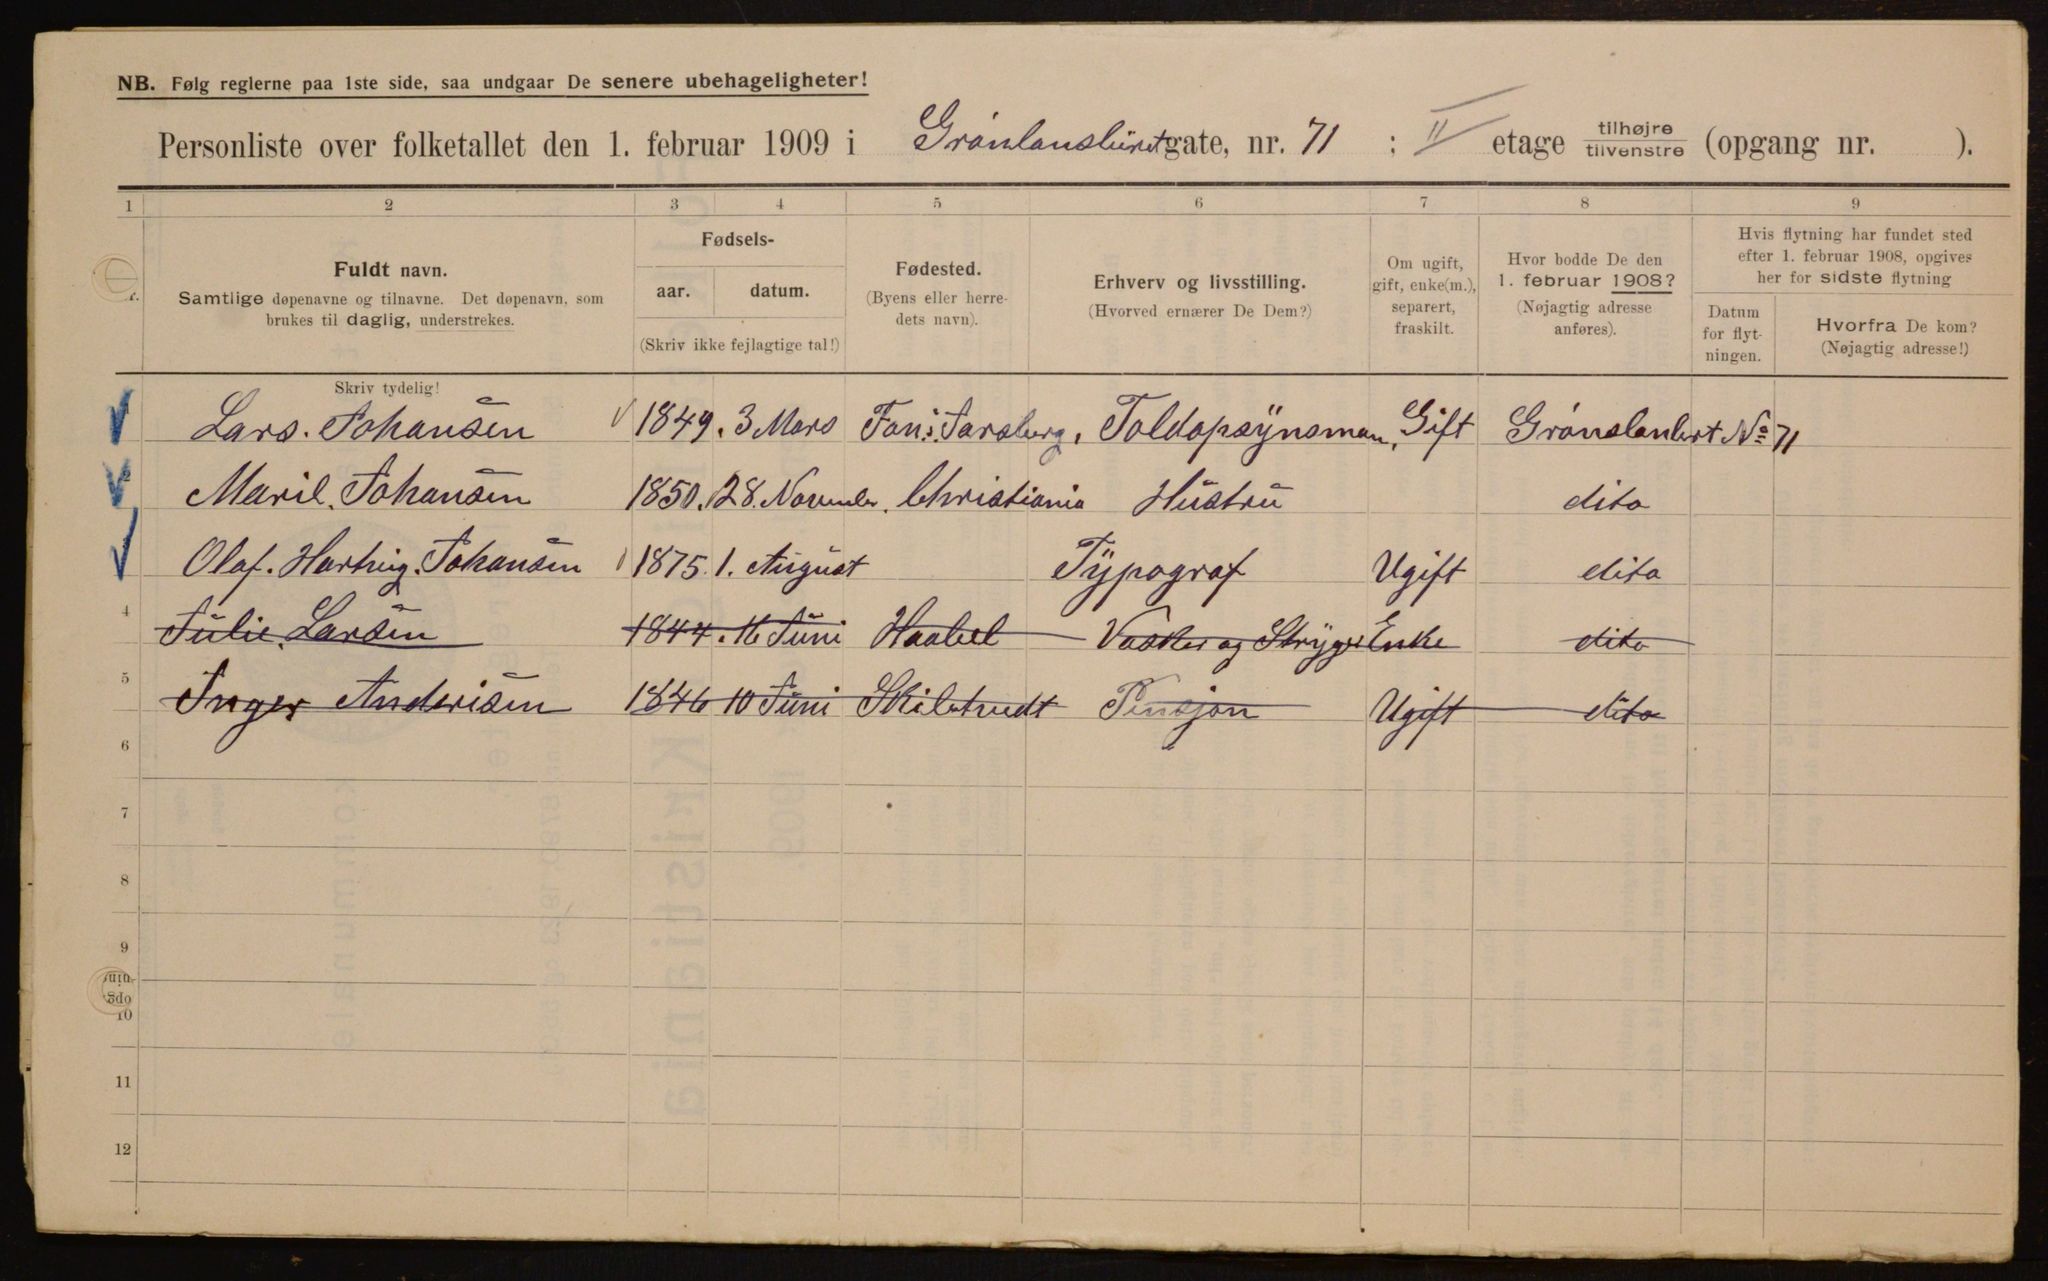 NB. Følg reglerne paa 1ste side, saa undgaar De senere ubehageligheter!
Personliste over folketallet den 1. februar 1909 i Grönlanslüret gate, nr. 71 : II etage tilhøjre tilvenstre (opgang nr. ).
1 2 3 4 5 6 7 8 9
Fuldt navn.
Samtlige døpenavne og tilnavne. Det døpenavn, som
brukes til daglig, understrekes.
Skriv tydelig!
Fødsels-
aar. datum.
(Skriv ikke fejlagtige tal!)
Fødested.
(Byens eller herre-
dets navn).
Erhverv og livsstilling.
(Hvorved ernærer De Dem?)
Om ugift,
gift, enke(m.),
separert,
fraskilt.
Hvor bodde De den
1. februar 1908?
(Nøjagtig adresse
anføres).
Hvis flytning har fundet sted
efter 1. februar 1908, opgives
her for sidste flytning
Datum
for flyt-
ningen.
Hvorfra De kom?
(Nøjagtig adresse!)
Lars. Johansen 1849. 3 Mars Fon i Sarsberg. Toldopsynsman, Gift Grönslenlert No 71
Maril. Johansen 1850. 28. November. Christiania Hustru dito
Olaf. Hartvig. Johansen 1875. 1. August Typograf Ugift dito
4 Julie. Larsen 1844. 16 Juni Haabel Vasker og Stryger Enke dito
5 Inger Anderisen 1846 10 Juni Skibtvedt Pensjon Ugift dito
6
7
8
9
10
11
12